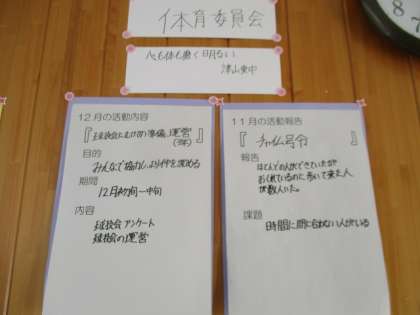 体育委員会
心も体も磨く明るい
津山東中
12月の活動内容
『球技会にむけての準備、運営』
目的
みんなで協力し、より仲を深める
期間
12月初旬~中旬
内容
球技会アンケート
球技会の運営
11月の活動報告
『チャイム号令』
報告
ほとんどの人ができていたが
おくれているのに、歩いて来た人
が数人いた。
課題
時間に間に合わない人がいる
8
7